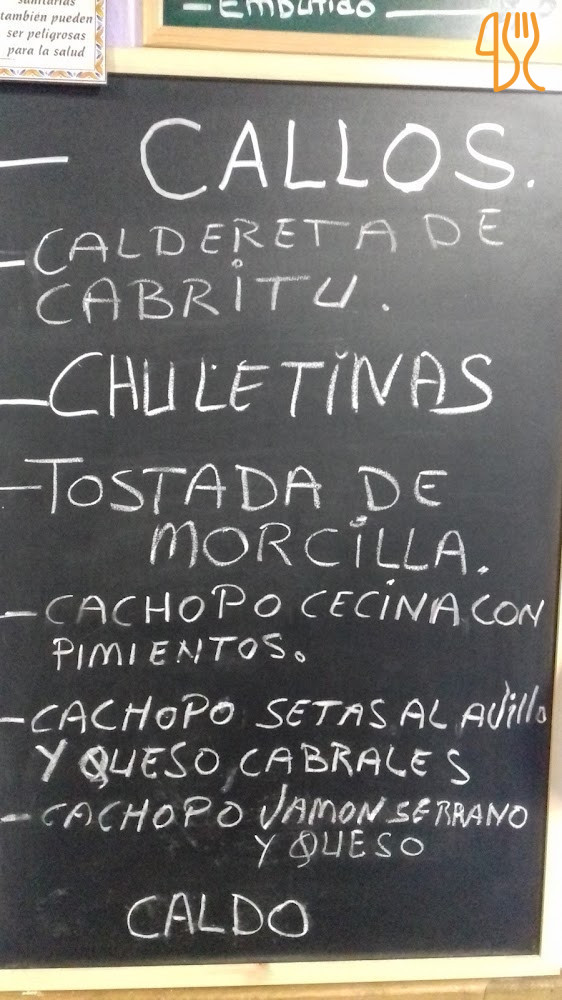 sanitarias
también pueden
ser peligrosas
para la salud
- EMBUTIDO
- CALLOS.
- CALDERETA DE
CABRITU.
- CHULETINAS
- TOSTADA DE
MORCILLA.
- CACHOPO CECINA CON
PIMIENTOS.
- CACHOPO SETAS AL AJillo
Y QUESO CABRALES
- CACHOPO JAMON SERRANO
Y QUESO
CALDO